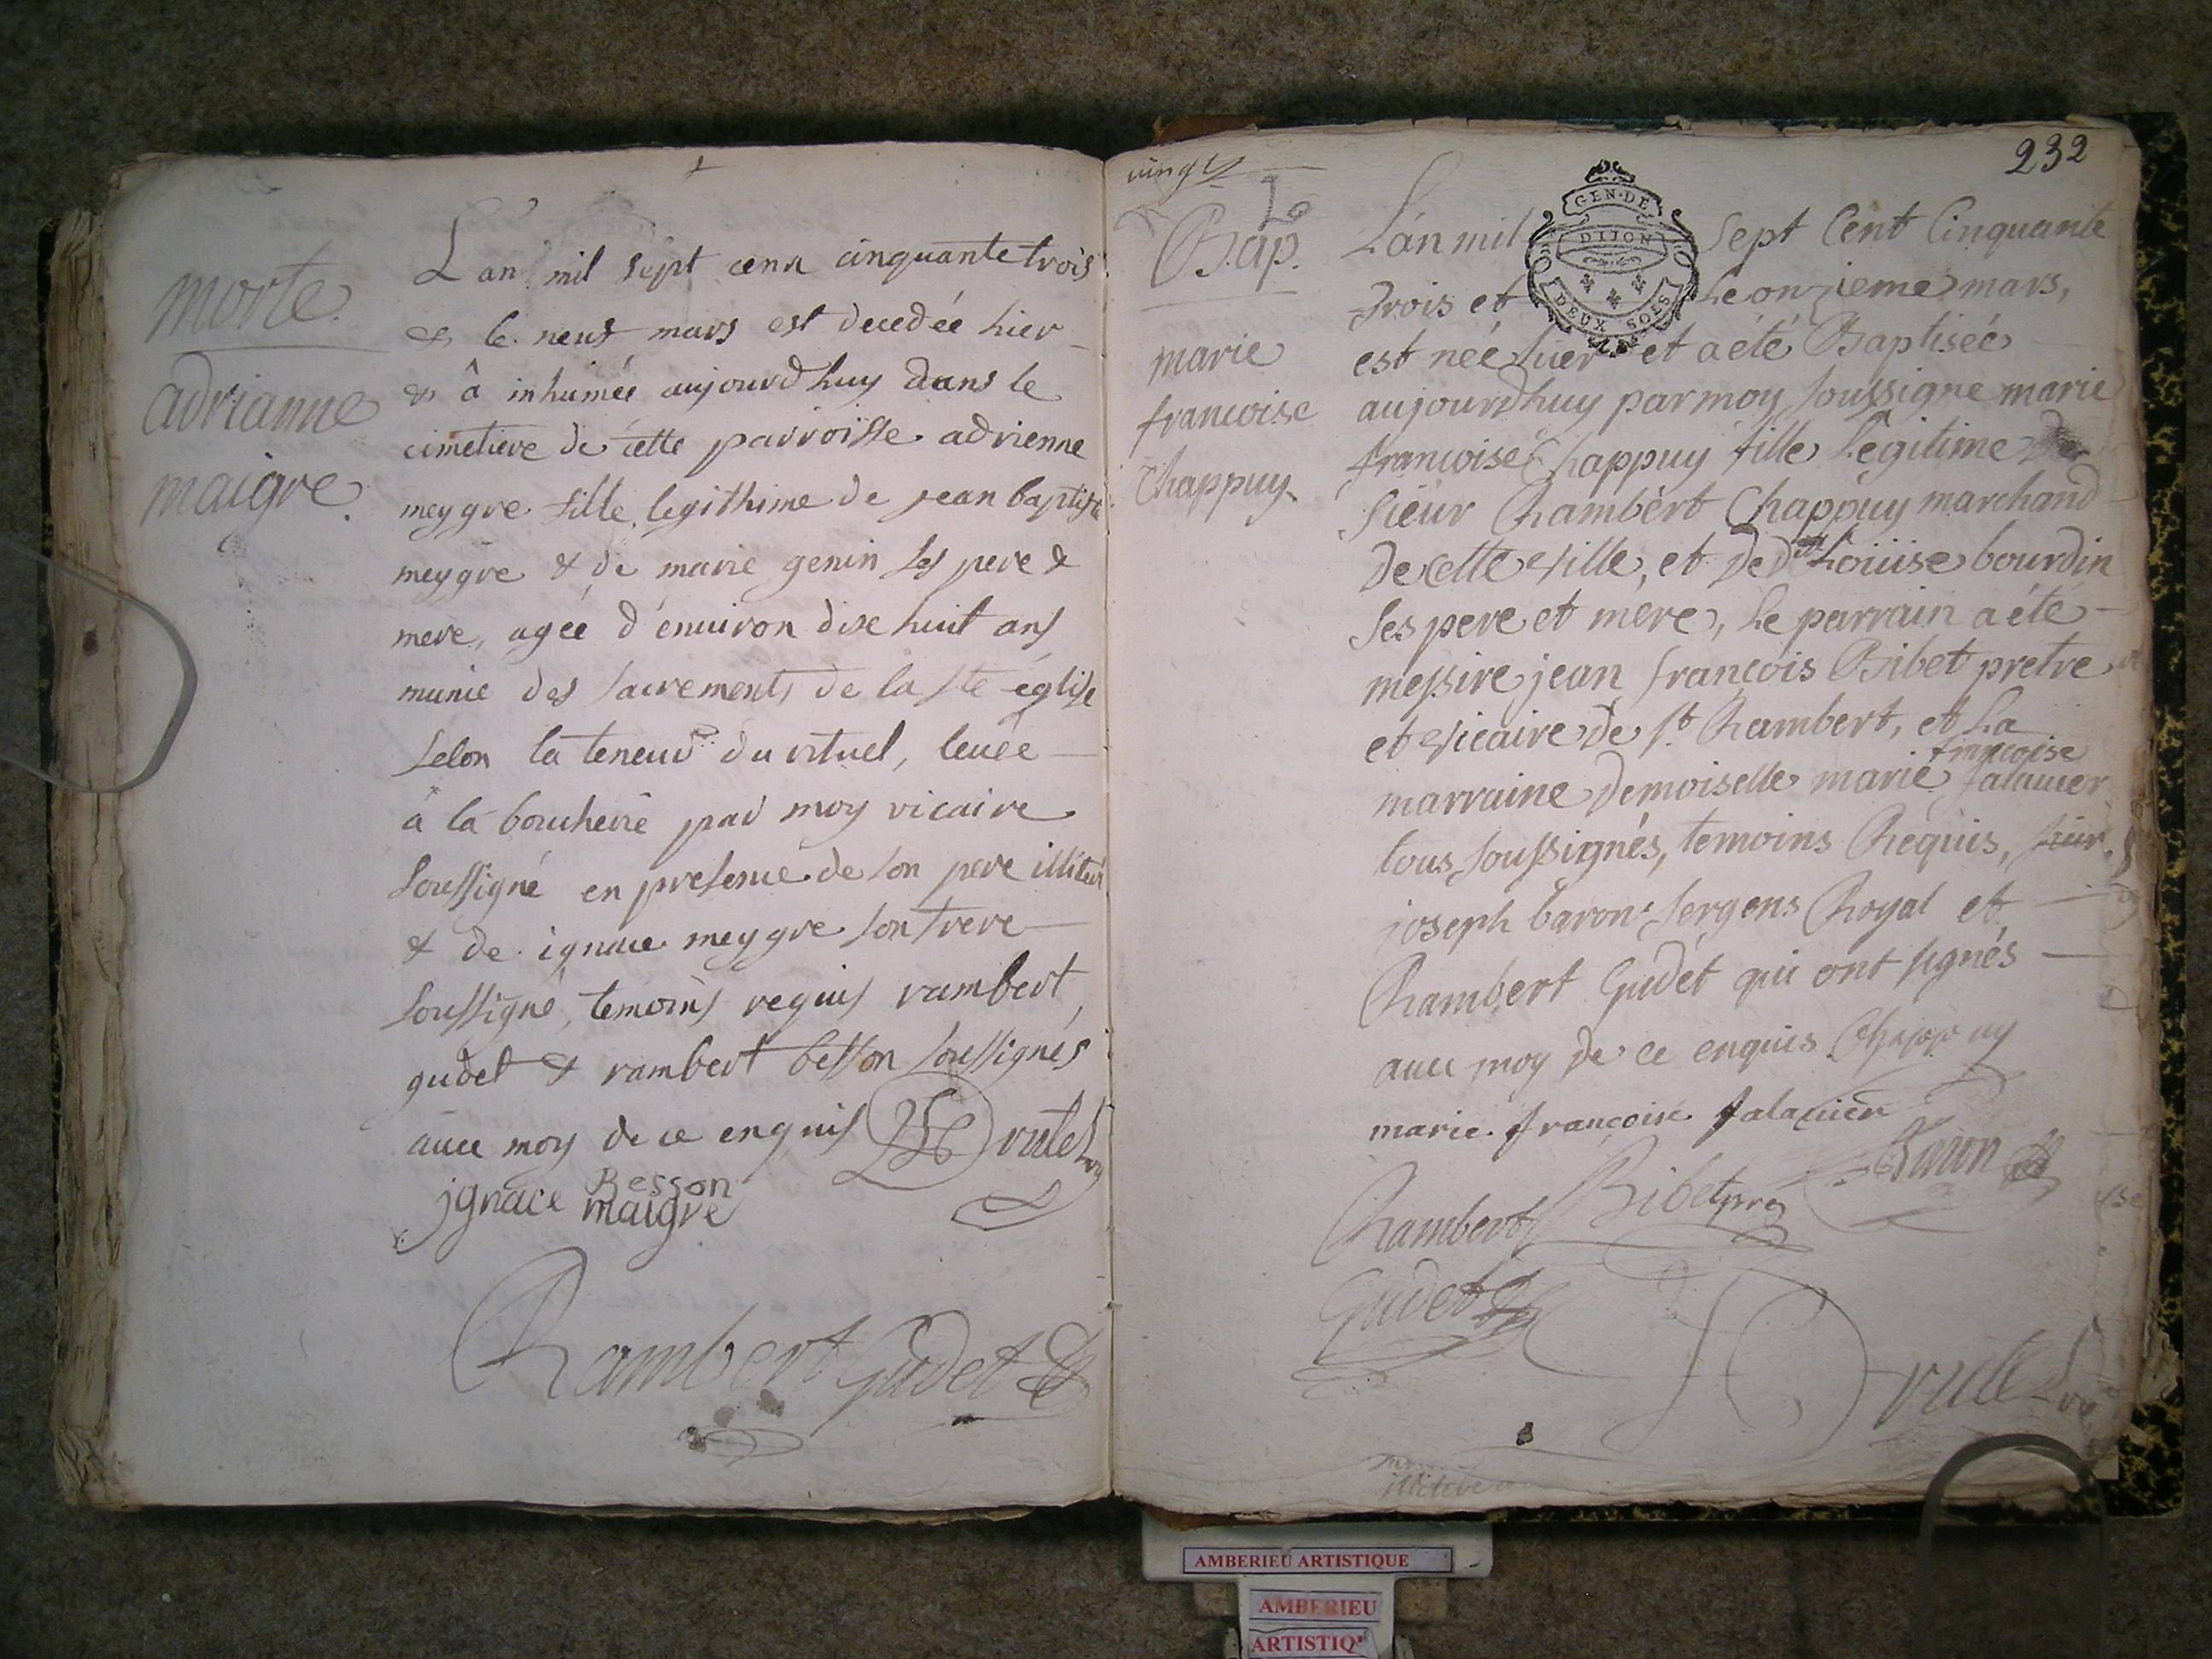 morte
adrianne
maigre
L'an mil sept cens cinquante trois
& le neuf mars est decedée hier
& â inhumée aujourdhuy dans le
cimetiere de cette parroisse adrienne
meygre fille legithime de jean baptiste
meygre & de marie genin ses pere &
mere, agée d'environ dix huit ans
munie des sacrements de la ste église
selon la teneur du rituel, levée
à la boucherie par moy vicaire
soussigné en presence de son pere illiteré
& de ignace meygre son frere
soussigné, temoins requis rambert
gudet & rambert besson soussignés
avec moy de ce enquis Drutel
Besson
jgnace maigre
Rambert Gudet
vingt
232
Bap.
marie
francoise
Chappuy
GEN. DE
DIJON
DEUX SOLS
L'an mil sept Cent Cinquante
trois et le onzieme mars,
est née hier et a été Baptisée
aujourdhuy par moy soussigne marie
francoise Chappuy fille Legitime de
sieur Rambert Chappuy marchand
de cette ville, et de dlle Loüise bourdin
ses pere et mere, Le parrain a été
messire jean françois Ribet pretre
et vicaire de st Rambert, et La
francoise
marraine demoiselle marie falavier
tous soussignés, temoins Requis, sieur
joseph baron sergens Royal et
Rambert Gudet qui ont signés
avec moy de ce enquis Chappuy
marie francoise falavier
Baron
Ribet pre
Rambert
Gudet
Drutel
AMBERIEU ARTISTIQUE
AMBERIEU
ARTISTIQ